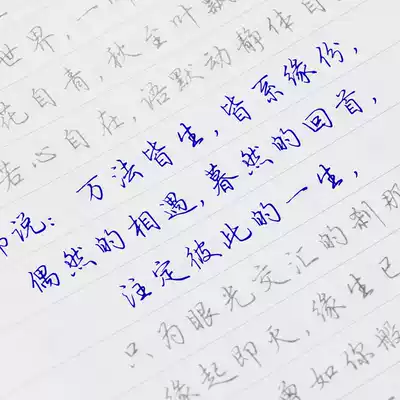 世界，一
花自青，秋至叶飘
若心自在，语默动静体自
说：万法皆生，皆系缘份，
偶然的相遇，暮然的回首，
注定彼此的一生，
只为眼光交汇的刹那
缘起即灭，缘生已
如你般